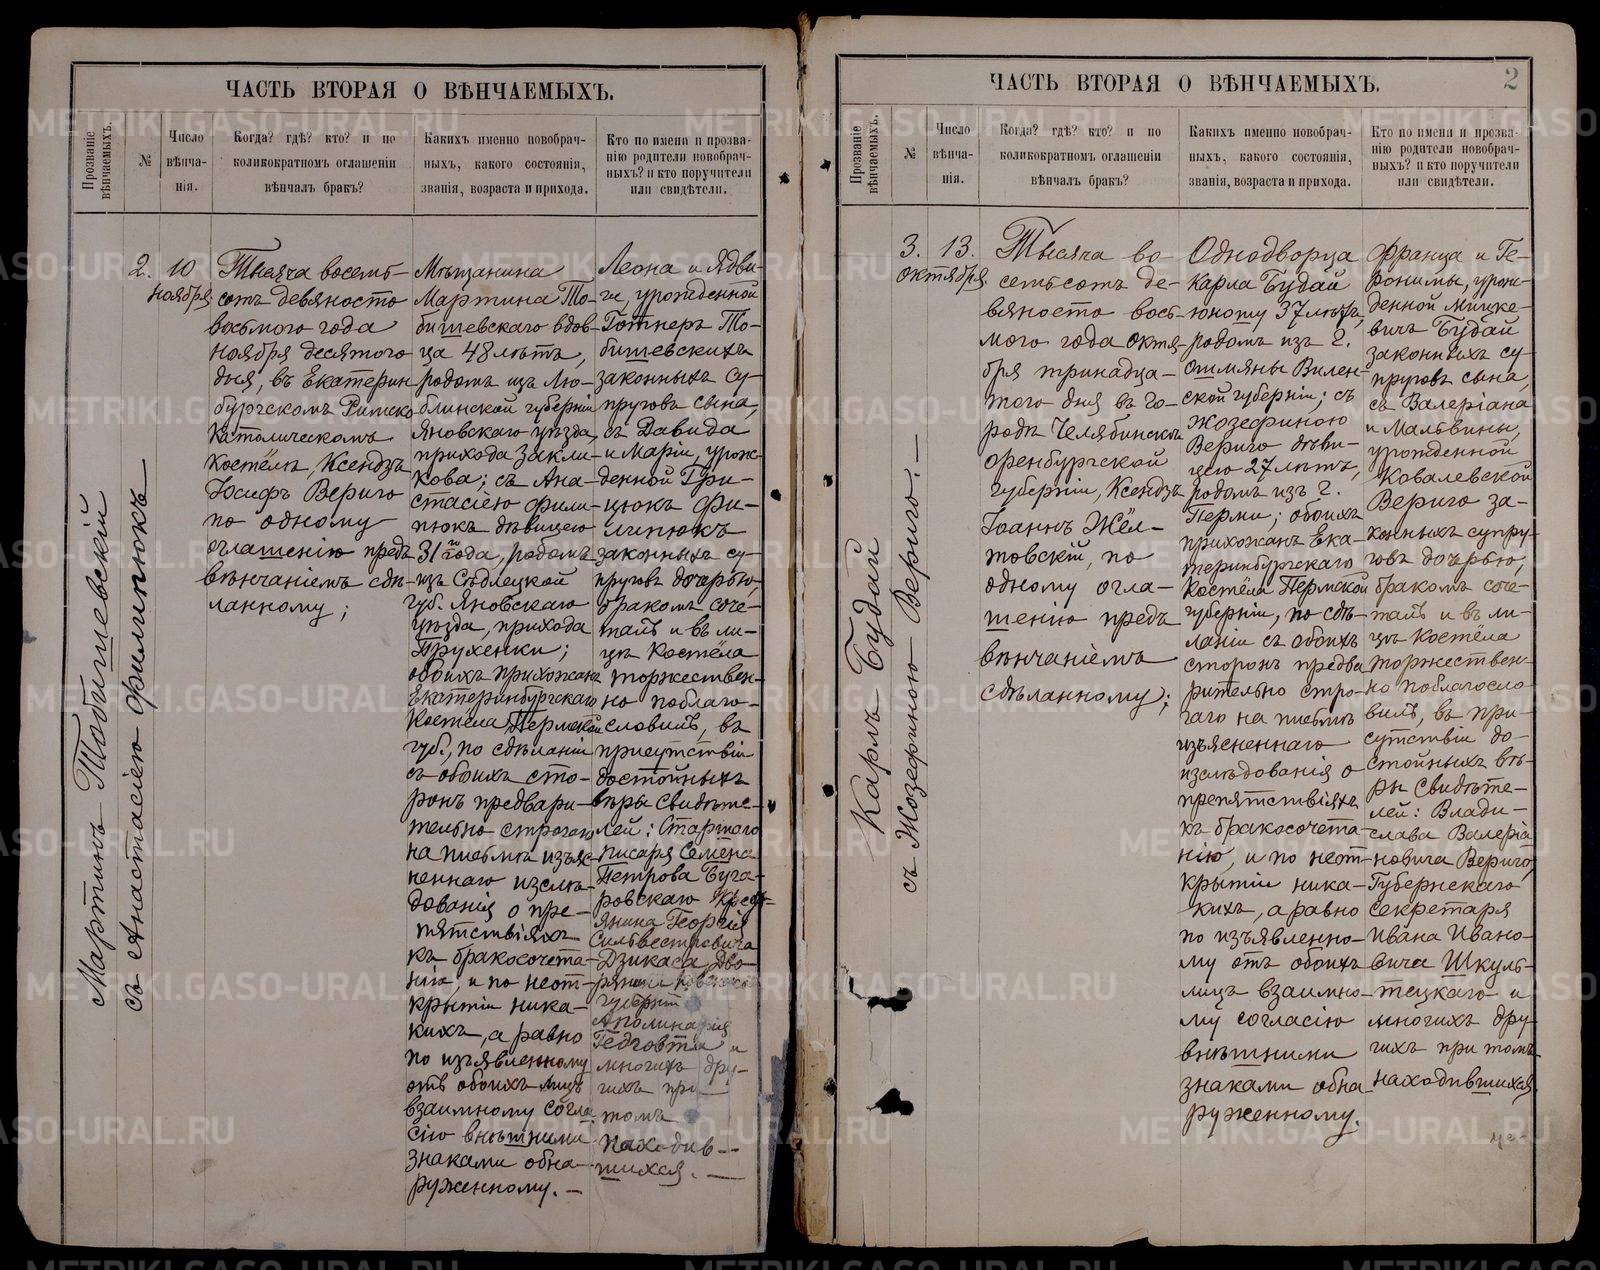 ЧАСТЬ ВТОРАЯ О ВѢНЧАЕМЫХЪ.
Прозваніе вѣнчаемыхъ.
№
Число вѣнча-нія.
Когда? гдѣ? кто? и по
коликократномъ оглашеніи
вѣнчалъ бракъ?
Какихъ именно новобрач-
ныхъ, какого состоянія,
званія, возраста и прихода.
Кто по имени и прозва-
нію родители новобрач-
ныхъ? и кто поручители
или свидѣтели.
Мартинъ Тобишевскій
съ Анастасіею Филипюкъ
2.
10
ноября
Тысяча восемь-
сотъ девяносто
восьмого года
ноября десятого
дня, въ Екатерин
бургскомъ Римско
Католическомъ
Костёлѣ, Ксендзъ
Іосифъ Вериго
по одному
оглашенію предъ
вѣнчаніемъ сдѣ-
ланному;
Мѣщанина
Мартина То-
бишевскаго вдов-
ца 48 лѣтъ,
родомъ изъ Лю-
блинской губерніи
Яновскаго уѣзда,
прихода Закли-
кова; съ Ана-
стасіею Фили-
пюкъ дѣвицею
31 го года, родомъ
изъ Сѣдлецкой
губ. Яновскаго
уѣзда, прихода
Пруженки;
обоихъ прихожанъ
Екатеринбургскаго
Костёла Пермской
губ., по сдѣланіи
съ обоихъ сто-
ронъ предвари-
тельно строгаго
на письмѣ изъяс-
неннаго изслѣ-
дованія о пре-
пятствіяхъ
къ бракосочета-
нію, и по неот-
крытіи ника-
кихъ, а равно
по изъявленному
отъ обоихъ лицъ
взаимному согла
сію внѣшними
знаками обна-
руженному. —
Леона и Ядви-
ги, урожденной
Готнеръ То-
бишевскихъ
законныхъ су-
пруговъ сына,
съ Давида
и Маріи, урож-
денной Гри-
цюкъ Фи-
липюкъ
законныхъ су-
пруговъ дочерью,
бракомъ соче-
талъ и въ ли-
цѣ Костёла
торжествен-
но поблаго-
словилъ, въ
присутствіи
достойныхъ
вѣры свидѣте-
лей: Старшаго
писаря Семёна
Петрова Буга-
ровскаго Кресть-
янина Георгія
Сильвестровича
Дзикаса, Дво-
рянина Ковенской
губерніи
Аполинарія
Гедговта и
многихъ дру-
гихъ при
томъ
находив-
шихся. —
ЧАСТЬ ВТОРАЯ О ВѢНЧАЕМЫХЪ.
2
Прозваніе вѣнчаемыхъ.
№
Число вѣнча-нія.
Когда? гдѣ? кто? и по
коликократномъ оглашеніи
вѣнчалъ бракъ?
Какихъ именно новобрач-
ныхъ, какого состоянія,
званія, возраста и прихода.
Кто по имени и прозва-
нію родители новобрач-
ныхъ? и кто поручители
или свидѣтели.
Карлъ Будай
съ Жозефиною Вериго. —
3.
13.
октября
Тысяча во-
семьсотъ де-
вяносто вось-
мого года Октя-
бря тринадца-
того дня въ Го-
родѣ Челябинскѣ
оренбургской
губерніи, Ксендзъ
Іоаннъ Жёл-
товскій, по
одному огла-
шенію предъ
вѣнчаніемъ
сдѣланному;
Однодворца
Карла Будай
юношу 37 лѣтъ,
родомъ изъ г.
Ошмяны Вилен-
ской губерніи; съ
Жозефиною
Вериго дѣви-
цею 27 лѣтъ,
родомъ изъ г.
Перми; обоихъ
прихожанъ Ека
теринбургскаго
Костёла Пермской
губерніи, по сдѣ-
ланіи съ обоихъ
сторонъ предва
рительно стро-
гаго на письмѣ
изъясненнаго
изслѣдованія о
препятствіяхъ
къ бракосочета-
нію, и по неот-
крытіи ника-
кихъ, а равно
по изъявленно-
му отъ обоихъ
лицъ взаимно-
му согласію
внѣшними
знаками обна
руженному.
Франца и Ге-
ронимы, урож-
денной Мицке-
вичъ Будай
законныхъ су-
пруговъ сына,
съ Валеріана
и Мальвины,
урожденной
Ковалевской
Вериго за-
конныхъ супру-
говъ дочерью,
бракомъ соче-
талъ и въ ли-
цѣ Костёла
торжествен-
но поблагосло
вилъ, въ при-
сутствіи до-
стойныхъ вѣ-
ры свидѣте-
лей: Влади-
слава Валеріа
новича Вериго,
Губернскаго
секретаря
Ивана Ивано-
вича Шкуль-
тецкаго и
многихъ дру-
гихъ при томъ
находившихся.
METRIKI.GASO-URAL.RU